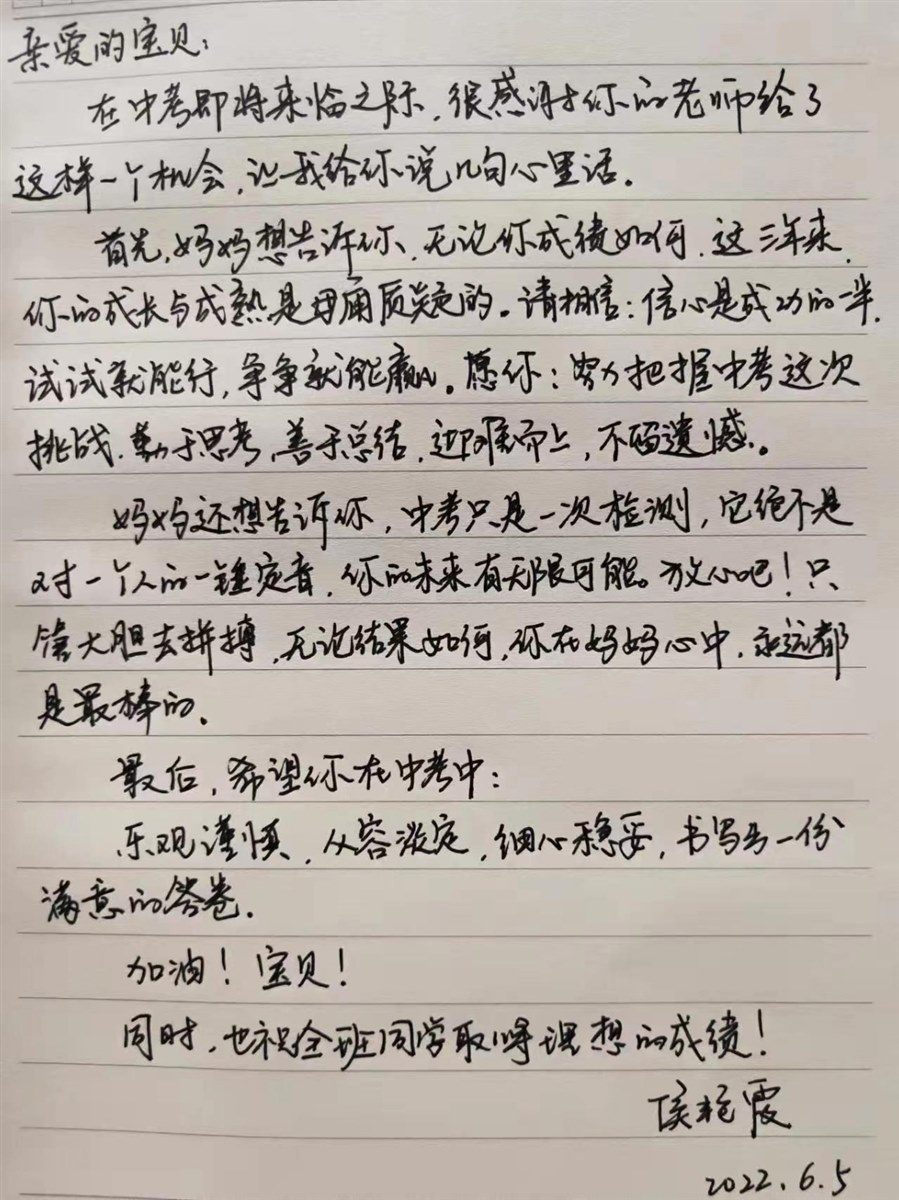 亲爱的宝贝:
在中考即将来临之际,很感谢你的老师给了
这样一个机会,让我给你说几句心里话。
首先,妈妈想告诉你,无论你成绩如何,这三年来,
你的成长与成熟是毋庸质疑的。请相信:信心是成功的一半,
试试就能行,争争就能赢。愿你:努力把握中考这次
挑战,勤于思考,善于总结,迎难而上,不留遗憾。
妈妈还想告诉你,中考只是一次检测,它绝不是
对一个人的一锤定音,你的未来有无限可能。放心吧!只
管大胆去拼搏,无论结果如何,你在妈妈心中,永远都
是最棒的。
最后,希望你在中考中:
乐观谨慎,从容淡定,细心稳妥,书写出一份
满意的答卷。
加油!宝贝!
同时,也祝全班同学取得理想的成绩!
侯艳霞
2022.6.5